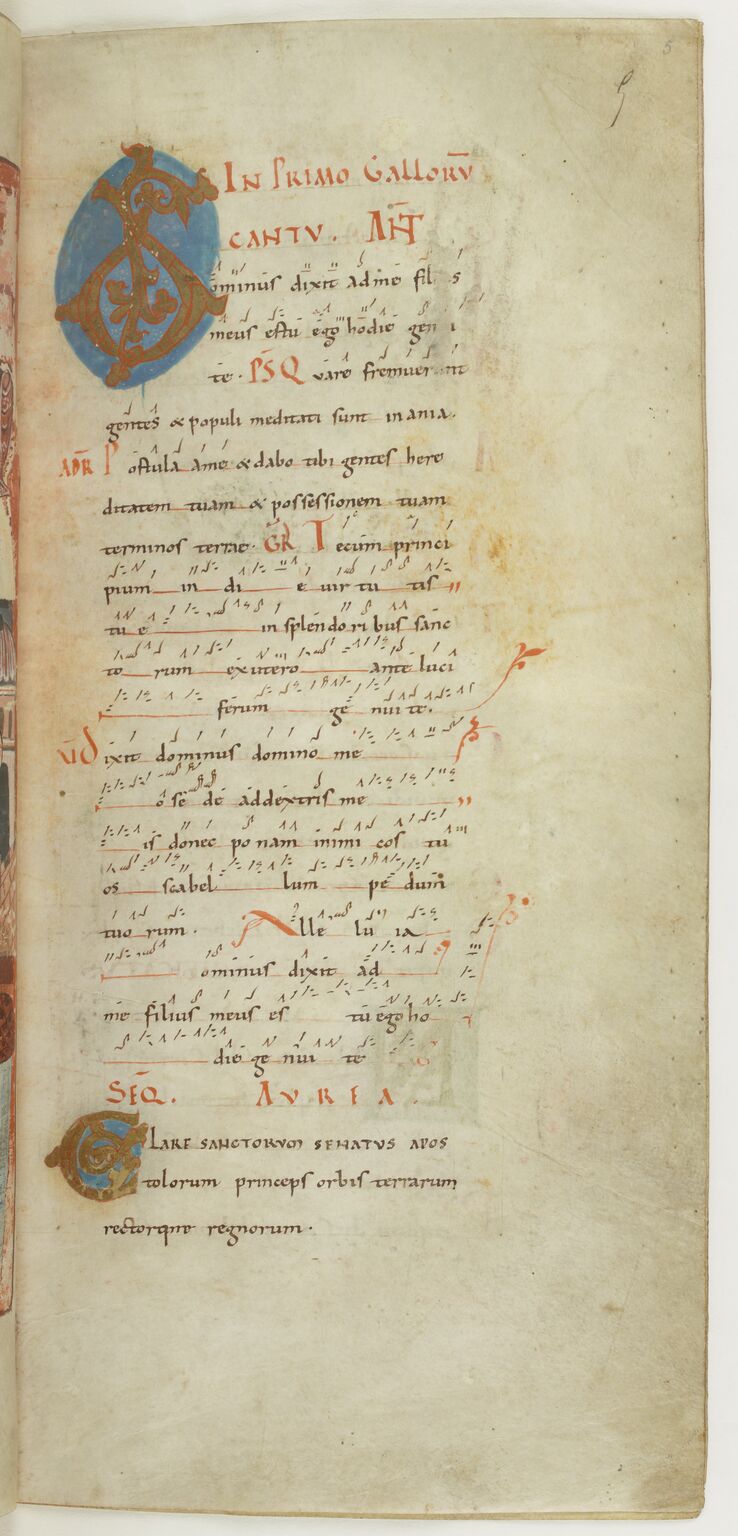 5
5
IN PRIMO GALLORŪ
CANTU. ANT
Dominus dixit ad me fili s
meus es tu ego hodie gen i
te. PS Quare fremuer nt
gentes & populi meditati sunt inania.
ADR Postula a me & dabo tibi gentes here
ditatem tuam & possessionem tuam
terminos terrae. GR Tecum princi
pium in di e vir tu tis
tu e in splendo ri bus sanc
to rum ex utero ante luci
ferum ge nui te.
Dixit dominus domino me
o se de ad dextris me
is donec po nam inimi cos tu
os scabel lum pe dum
tuo rum. Alle lu ia
ominus dixit ad
me filius meus es tu ego ho
die ge nui te
SEQ. AUREA.
CLARE SANCTORUM SENATUS APOS
tolorum princeps orbis terrarum
rectorque regnorum.